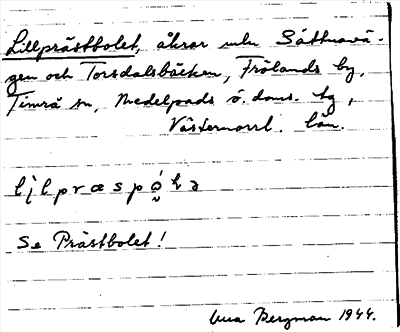 Lillprästbolet, åkrar mln Sättnavä-
gen och Torsdalsbäcken, Frölands by,
Timrå sn, Medelpads ö. doms. tg,
Västernorrl. län.
lįlpræspó̬lə
Se Prästbolet!
Bergman 1944.